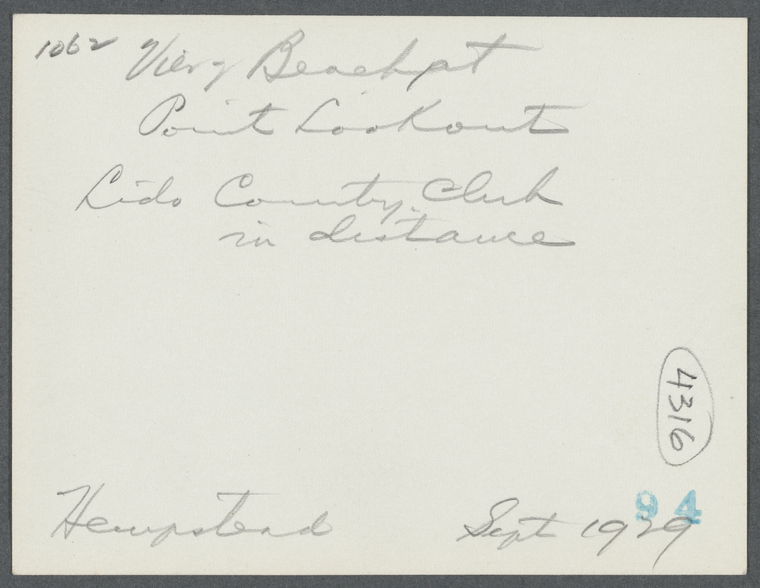 1062 View of Beach at
Point Lookout
Lido Country Club
in distance
4316
94
Hempstead Sept 1929